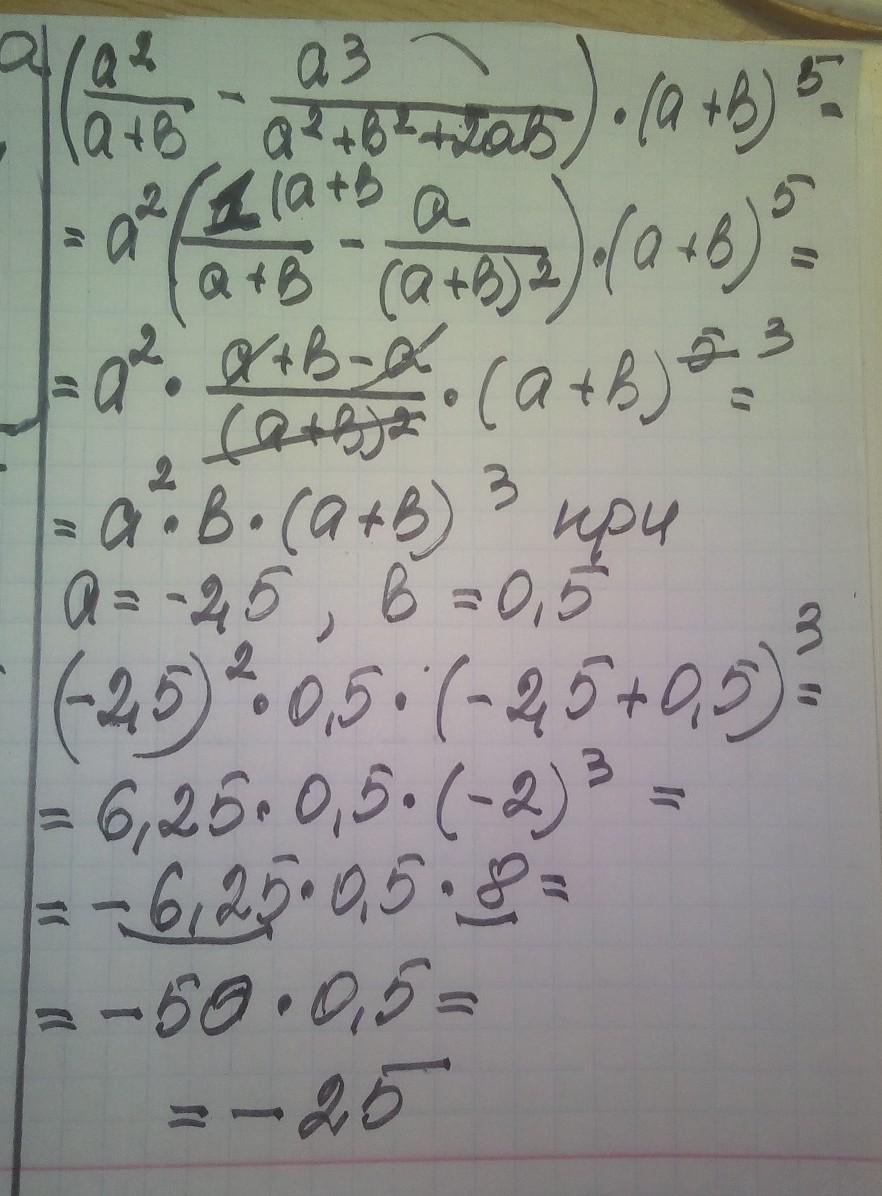 a (a²/(a+в) - a3/(a²+в²+2aв)) · (a+в)⁵ =
= a² (1(a+в/(a+в) - a/(a+в)²) · (a+в)⁵ =
= a² · (a+в-a)/(a+в)² · (a+в)⁵ ³ =
= a² · в · (a+в)³ при
a = -2,5 , в = 0,5
(-2,5)² · 0,5 · (-2,5+0,5)³ =
= 6,25 · 0,5 · (-2)³ =
= - 6,25 · 0,5 · 8 =
= - 50 · 0,5 =
= - 25